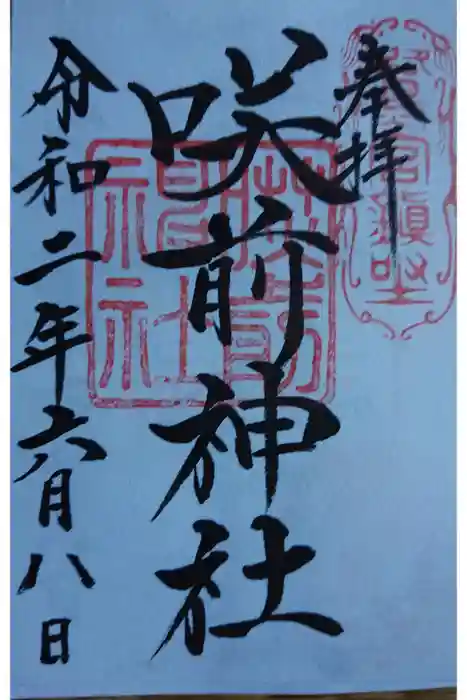 奉拝
咲前神社
令和二年六月八日
咲前神社